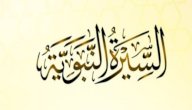 السِّيرَةُ النَّبَوِيَّةُ